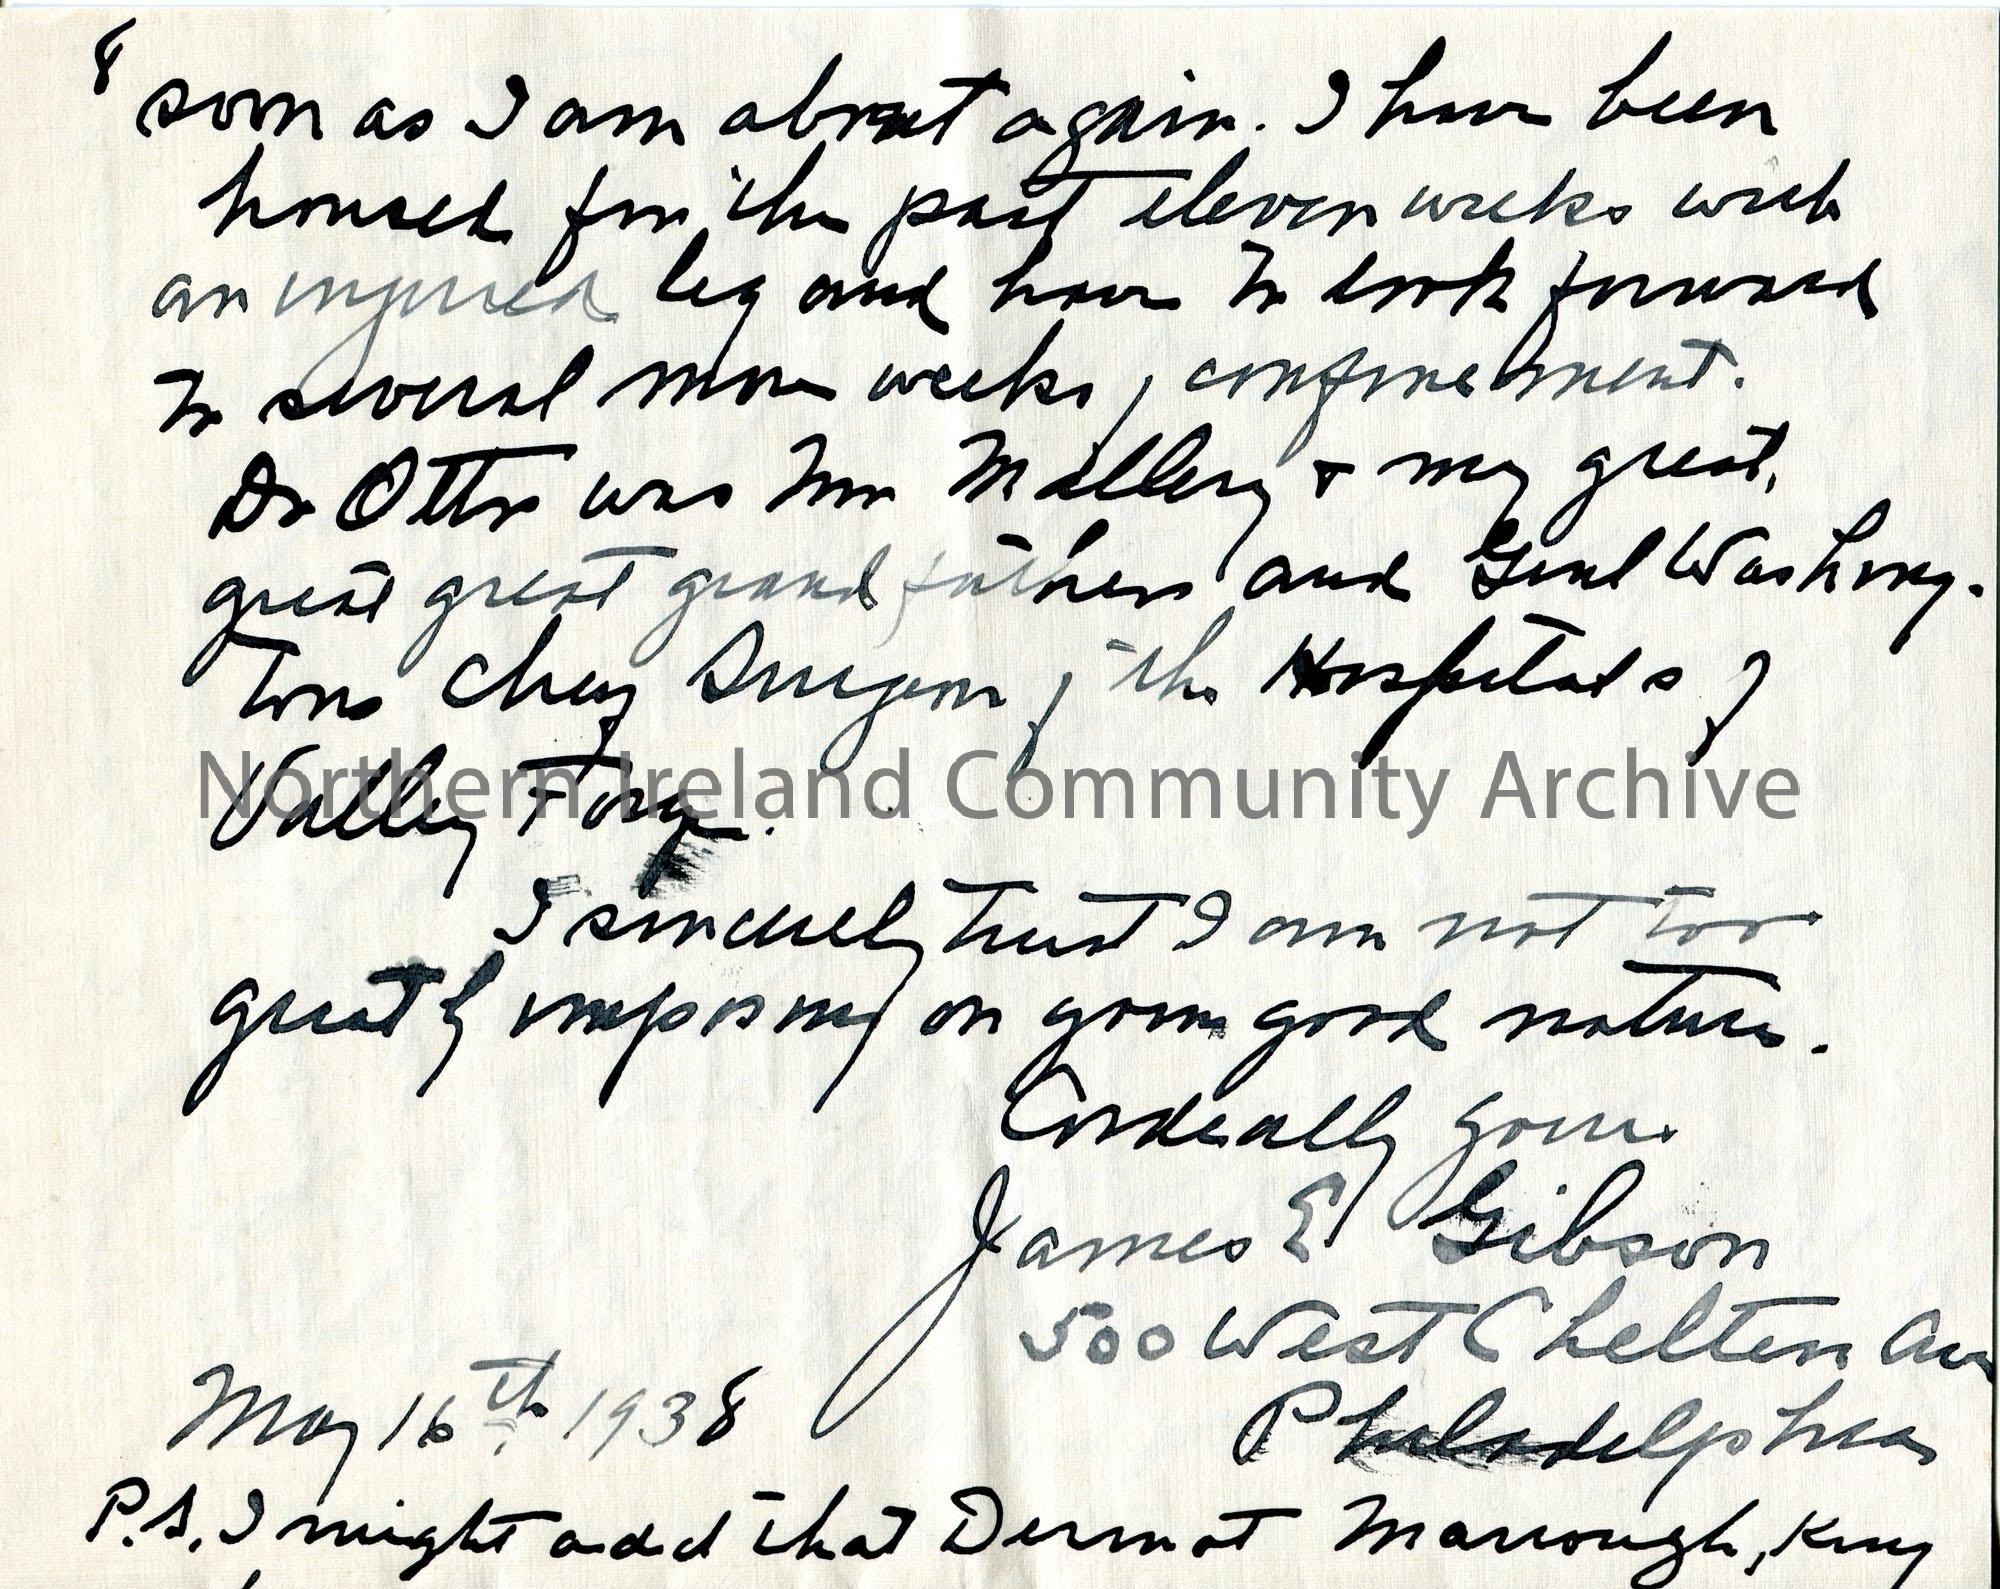 8
soon as I am about again. I have been
housed for the past eleven weeks with
an injured leg and have to look forward
to several more weeks, confinement.
Dr Otto was Mr Mallery & my great,
great great grandfathers and Genl Washing-
tons Chief Surgeon of the Hospitals of
Valley Forge.
Northern Ireland Community Archive
I sincerely trust I am not too
greatly imposing on your good nature.
Cordially yours
James E Gibson
500 West Chelten Ave
Philadelphia
May 16th, 1938
P.S. I might add that Dermot Marrough, King